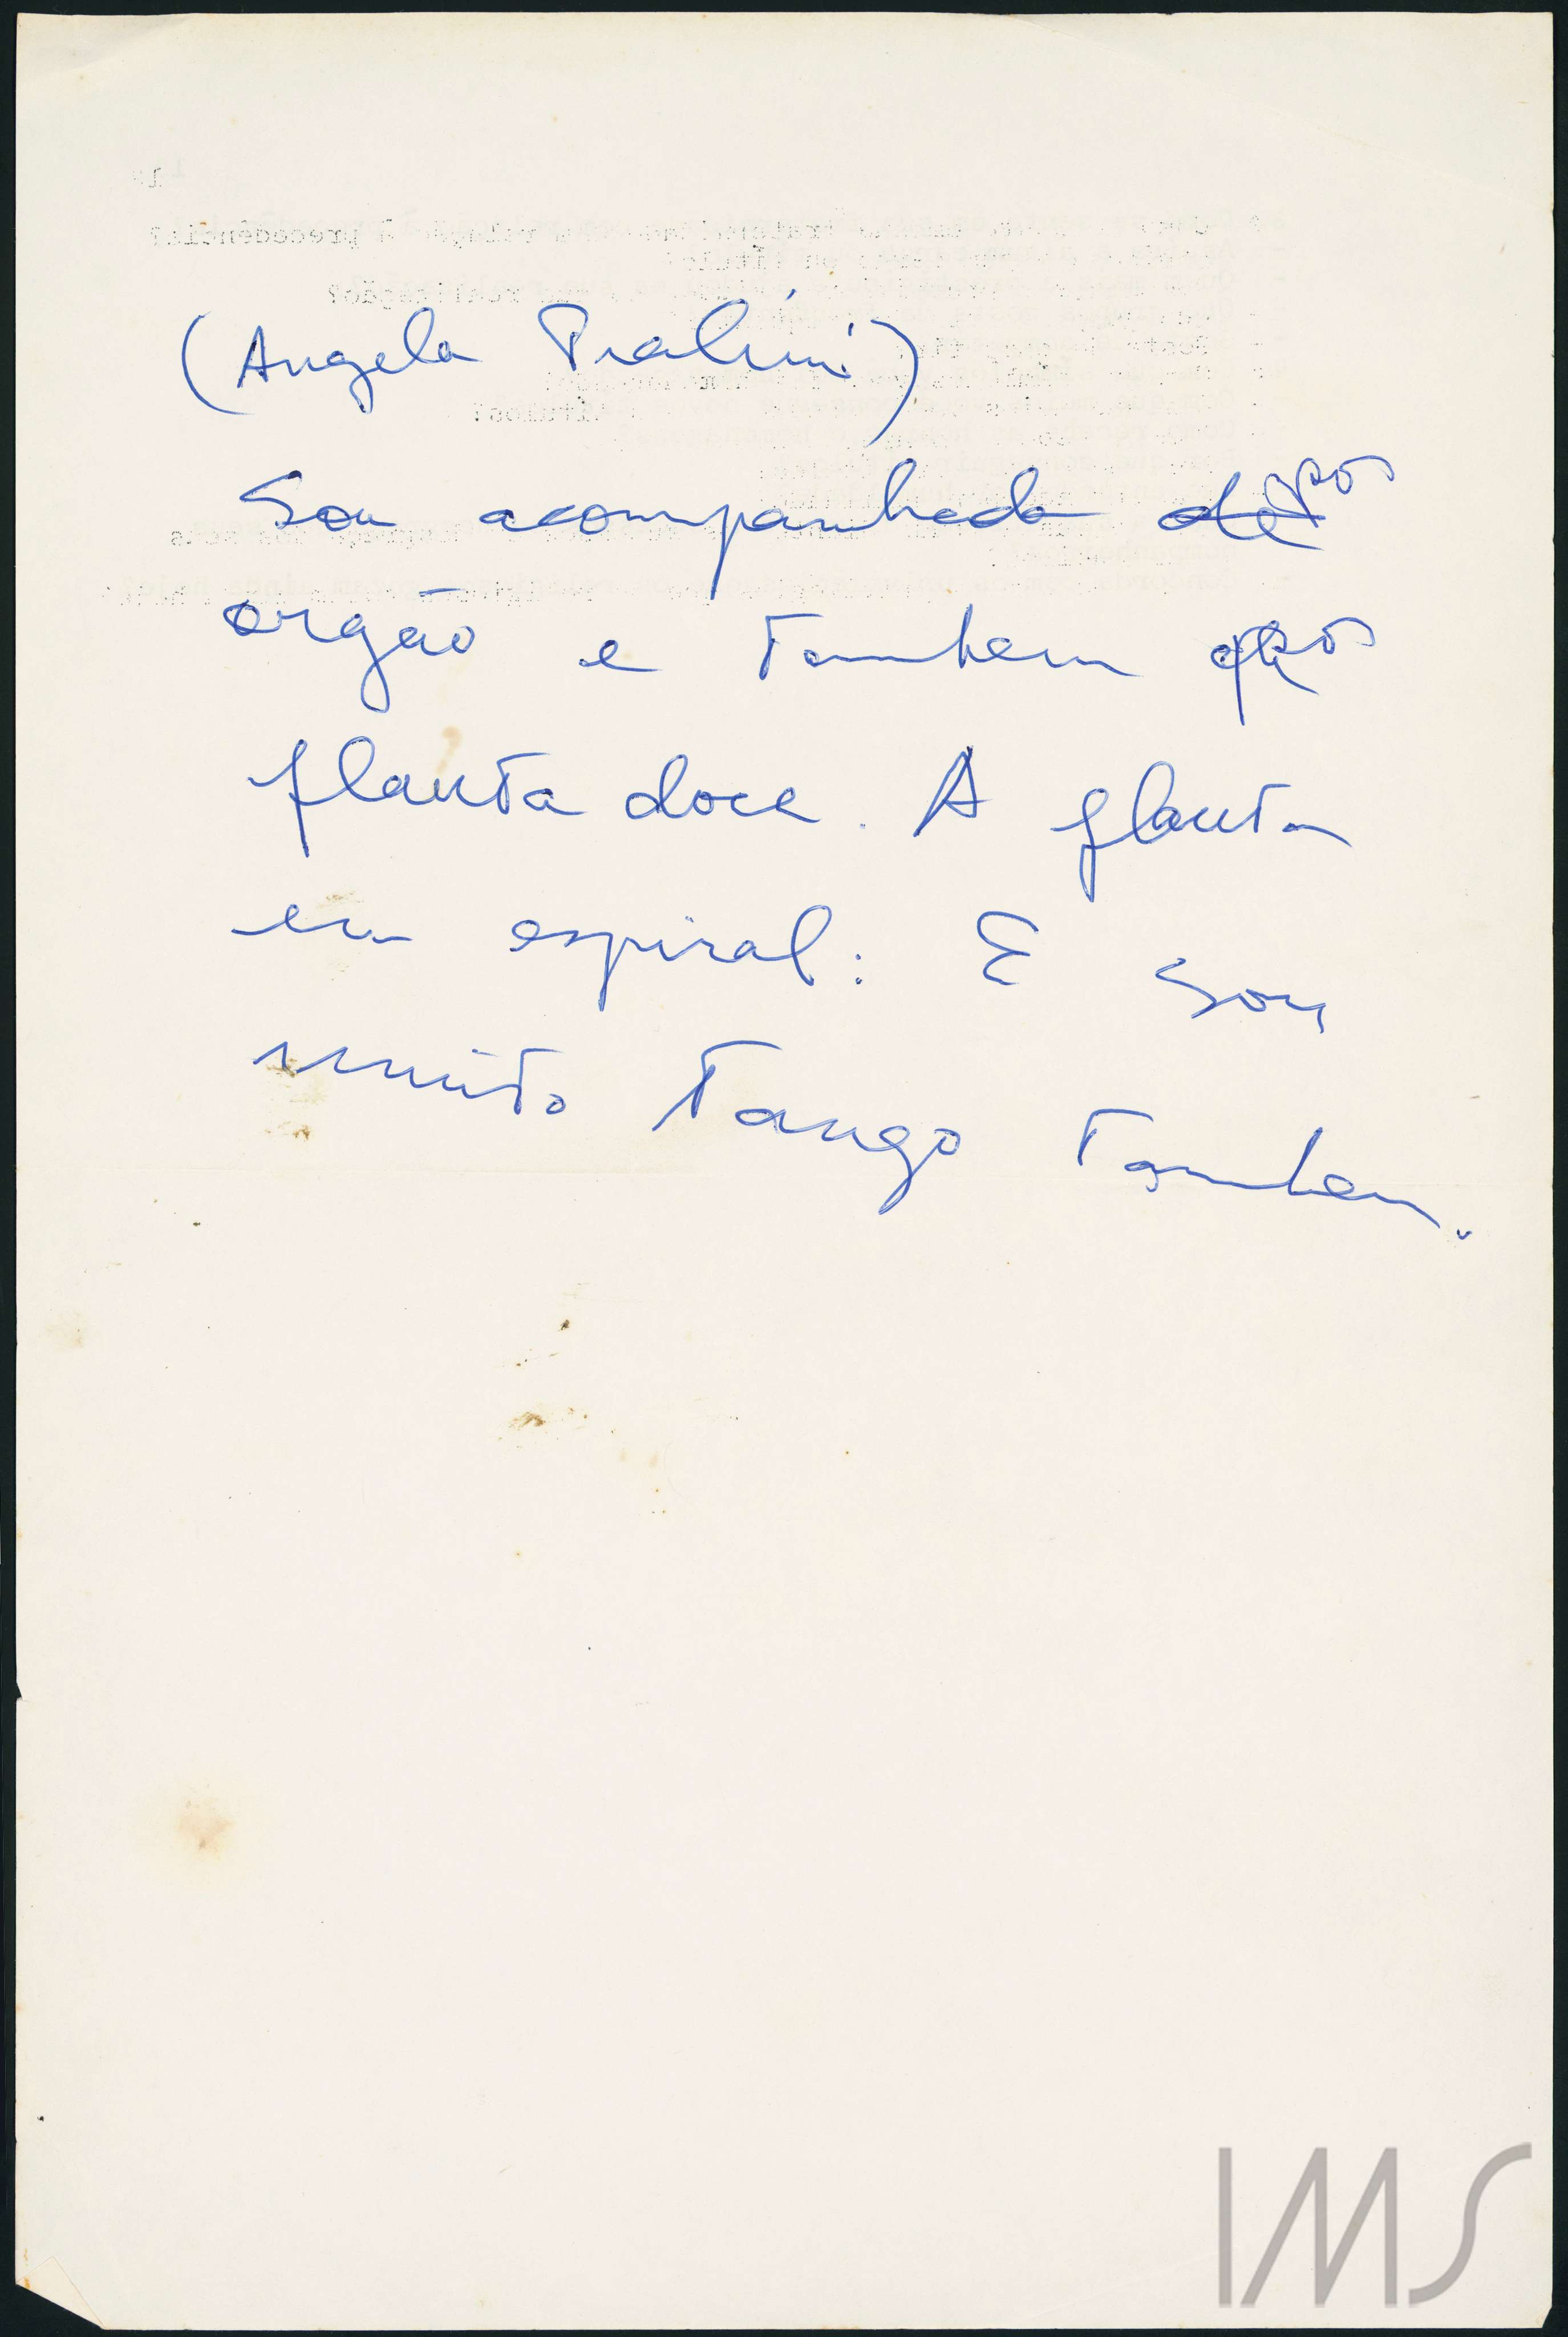 (Angela Pralini)
Sou acompanhada por
orgão e tambem por
flauta doce. A flauta
em espiral: E sou
muito tango tambem.
IMS